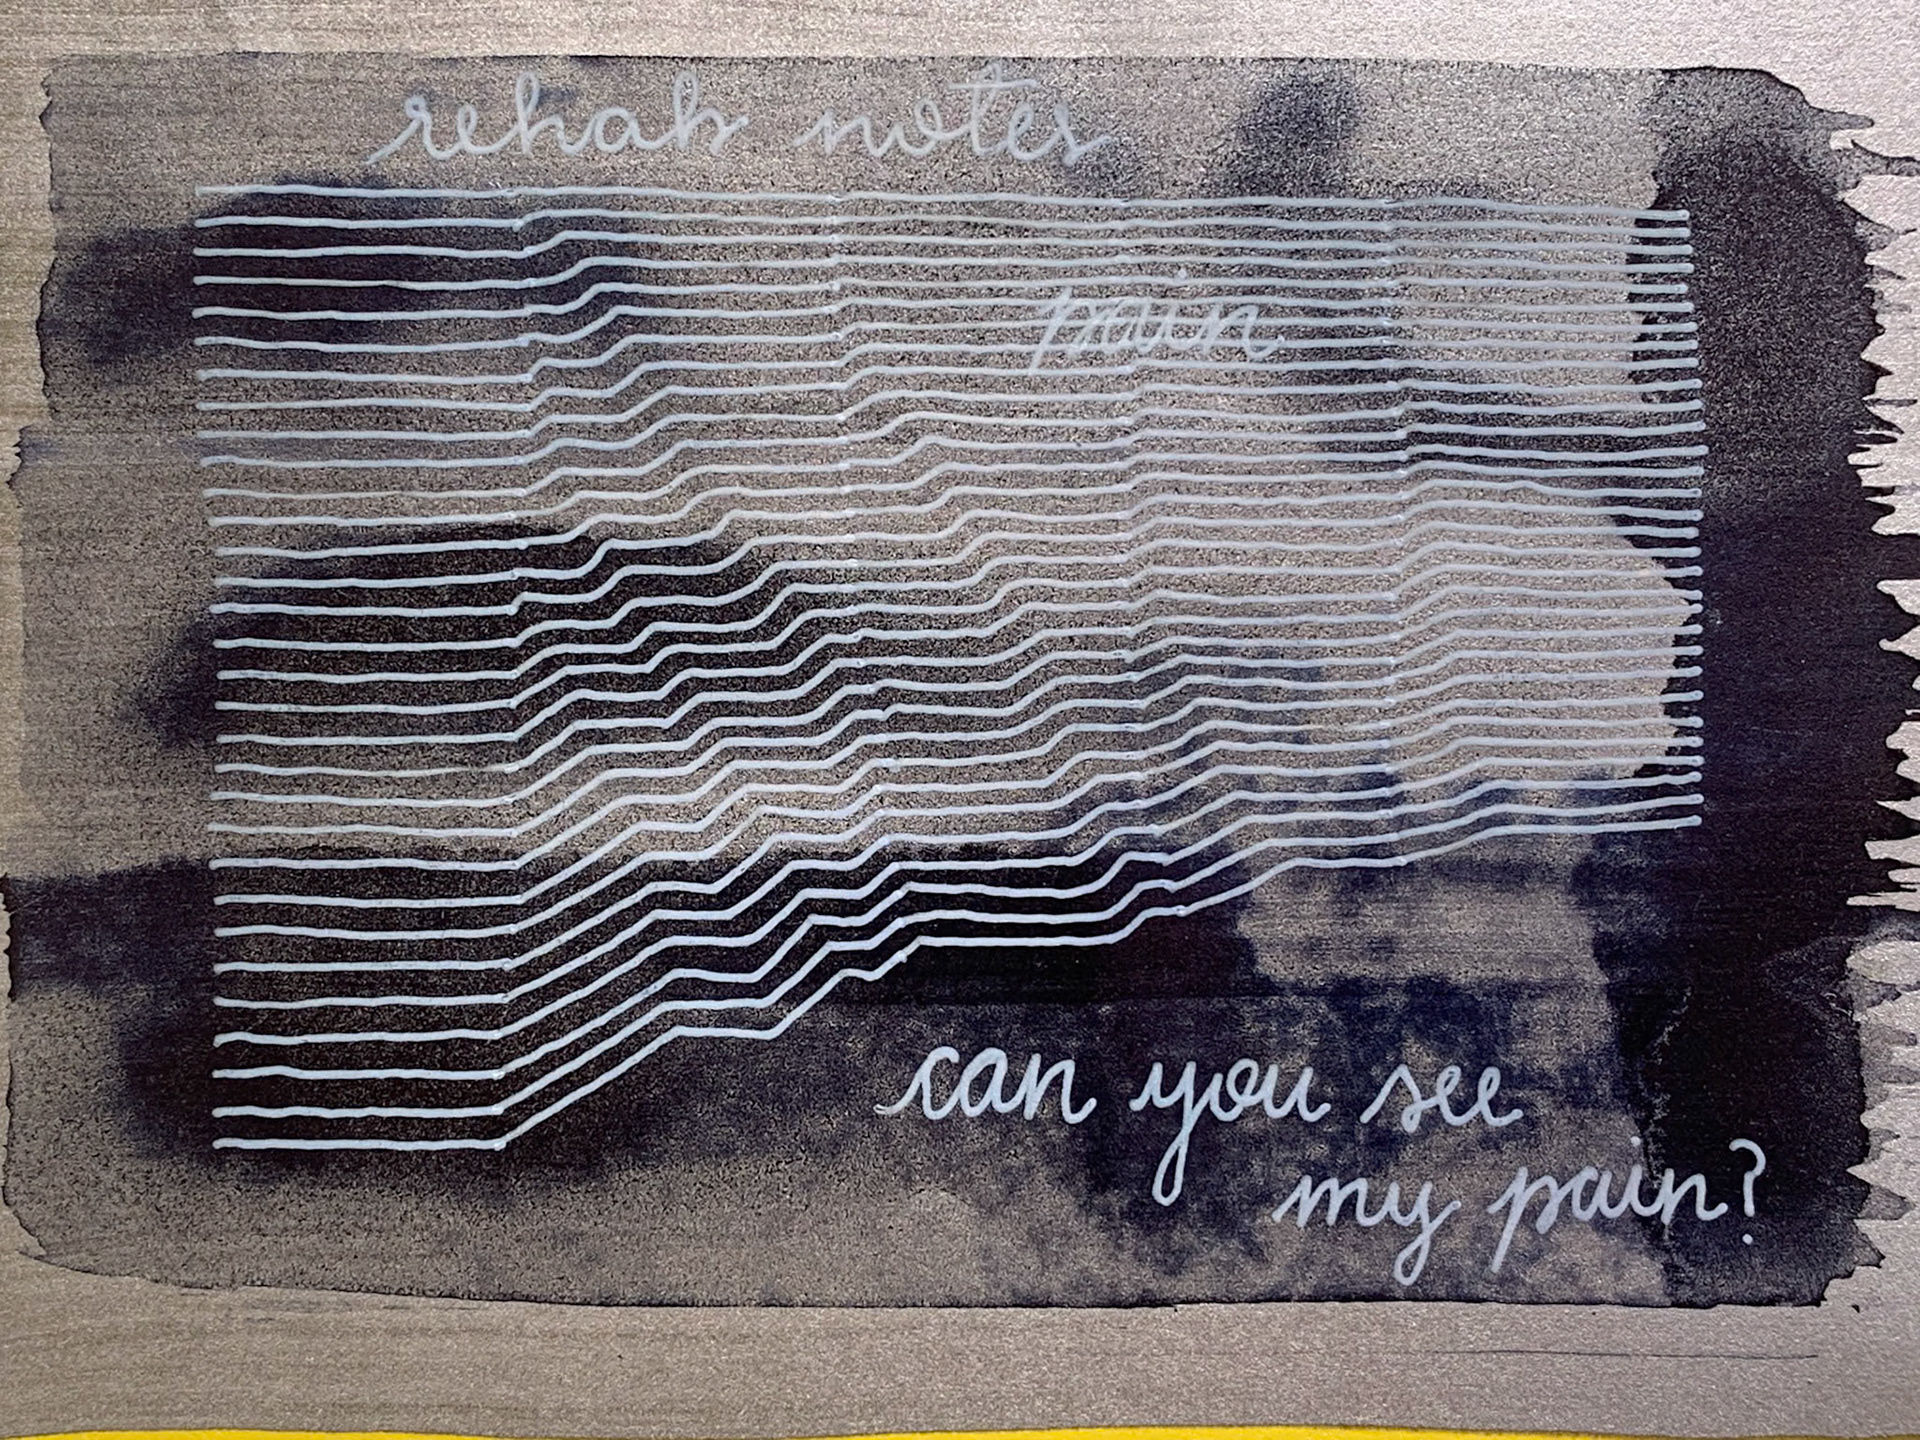 rehab notes
pain
can you see
my pain?